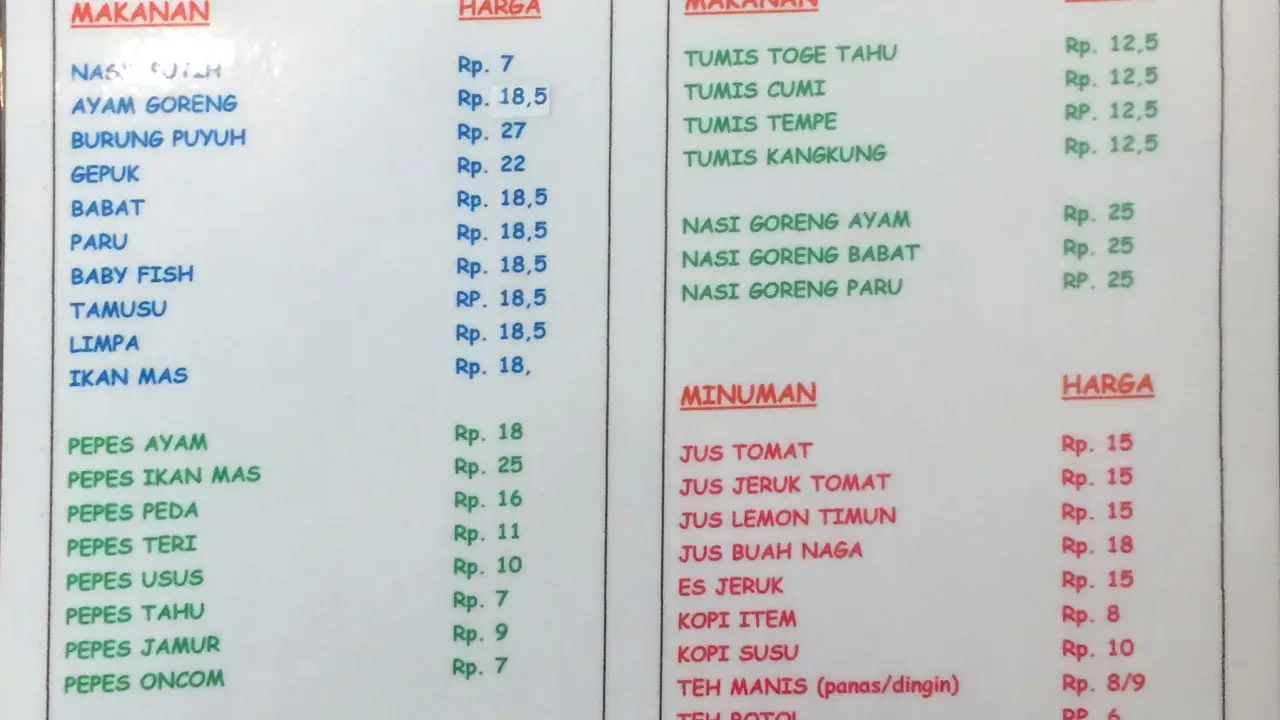 MAKANAN HARGA
Rp. 7
AYAM GORENG Rp. 18,5
BURUNG PUYUH Rp. 27
GEPUK Rp. 22
BABAT Rp. 18,5
PARU Rp. 18,5
BABY FISH Rp. 18,5
TAMUSU RP. 18,5
LIMPA Rp. 18,5
IKAN MAS Rp. 18,
PEPES AYAM Rp. 18
PEPES IKAN MAS Rp. 25
PEPES PEDA Rp. 16
PEPES TERI Rp. 11
PEPES USUS Rp. 10
PEPES TAHU Rp. 7
PEPES JAMUR Rp. 9
PEPES ONCOM Rp. 7
MAKANAN
TUMIS TOGE TAHU Rp. 12,5
TUMIS CUMI Rp. 12,5
TUMIS TEMPE RP. 12,5
TUMIS KANGKUNG Rp. 12,5
NASI GORENG AYAM Rp. 25
NASI GORENG BABAT Rp. 25
NASI GORENG PARU RP. 25
MINUMAN HARGA
JUS TOMAT Rp. 15
JUS JERUK TOMAT Rp. 15
JUS LEMON TIMUN Rp. 15
JUS BUAH NAGA Rp. 18
ES JERUK Rp. 15
KOPI ITEM Rp. 8
KOPI SUSU Rp. 10
TEH MANIS (panas/dingin) Rp. 8/9
TEH BOTOL RP. 6